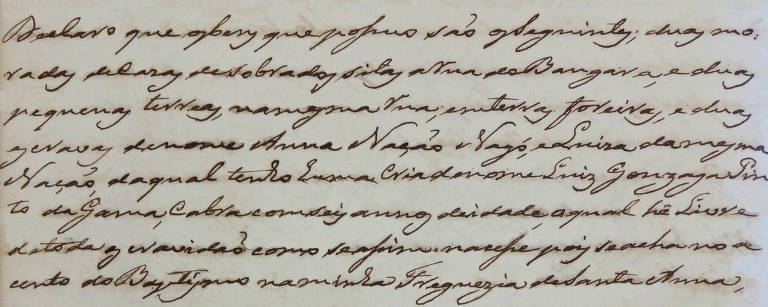 Declaro que os bens que possuo são os seguintes; duas mo:
radas de cazas de sobrados, sitas a rua do Bangaxa, e duas
pequenas terreas, na mesma rua, em terras foreiras, e duas
escravas de nome Anna Nação Nagó, e Luiza da mesma
Nação, da qual tenho huma cria de nome Luiz Gonzaga Pin
to da Gama, Cabra com seis annos de idade, a qual hé Livre
de toda escravidaõ como se assim nacesse pois se acha no a
cento do Baptismo na minha Freguezia de Santa Anna,